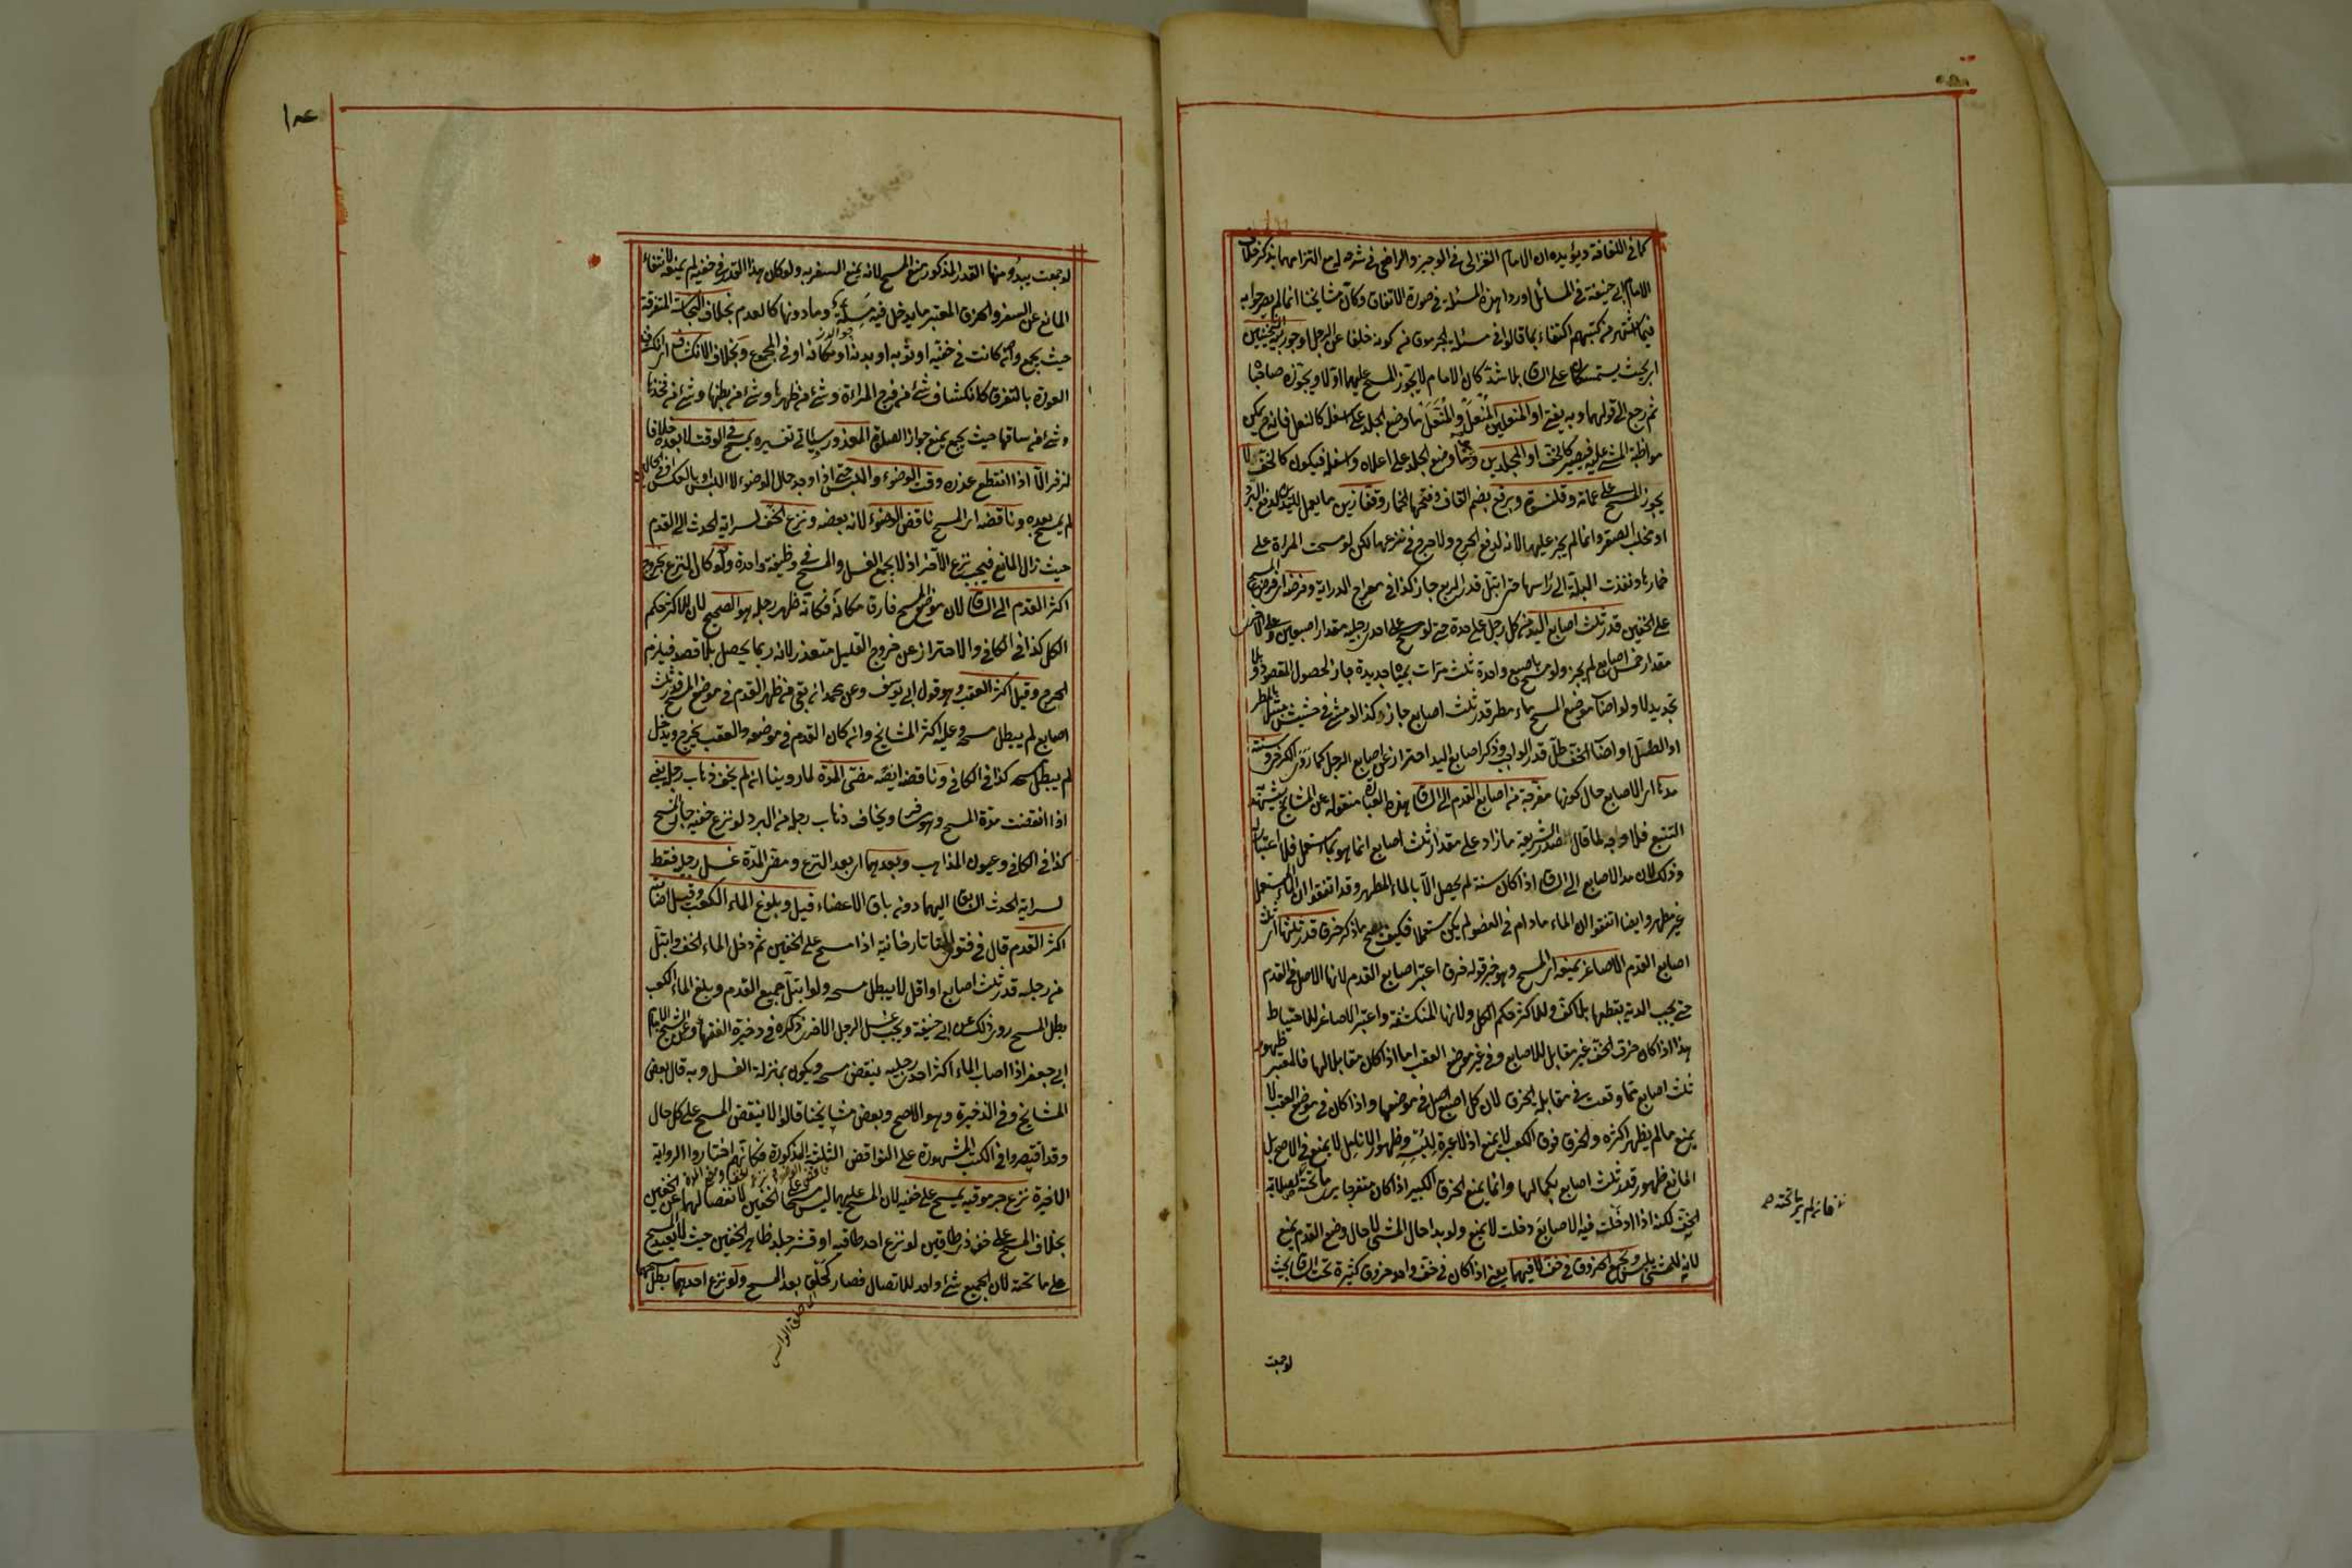 كما في اللفافة ويؤيده ان الامام الغزالى فى الوجيز والرافعى فى شرحه له مع التزامهما بذكر خلاف
الامام ابى حنيفة فى المسائل اوردا هذه المسئلة فى صورة الاتفاق وكان مشايخنا انما لم يصرحوا به
فيما اشتهر من كتبهم اكتفاء بما قالوا فى مسئلة الجرموق من كونه خلفا عن الرجل او جوربيه الثخينين
اى بحيث يستمسكان على الساق بلا شد كان الامام لا يجوز المسح عليهما اولا ويجوزه صاحباه
ثم رجع الى قولهما وبه يفتى او المنعلين المنعل والمنعل ما وضع الجلد على اسفله كالنعل فانه ح يمكن
مواظبة المشى عليه فيصير كالخف او المجلدين وهما ما وضع الجلد على اعلاه واسفله فيكون كالخف لا
يجوز المسح على عمامة وقلنسوة وبرقع بضم القاف وفتحها الخمار وقفازين ما يعمل لليدين لدفع البرد
او مخلب الصقر وانما لم يجز عليها لانه لدفع الحرج ولا حرج فى نزعها لكن لو مسحت المراة على
خمارها ونفذت البلة الى رأسها حتى ابتل قدر الربع جاز كذا فى معراج الدراية وفرضه اى فرض المسح
على الخفين قدر ثلث اصابع اليد من كل رجل على حدة حتى لو مسح على احدى رجليه مقدار اصبعين وعلى الاخرى
مقدار خمس اصابع لم يجز ولو مسح باصبع واحدة ثلث مرات بمياه جديدة جاز لحصول المقصود وبلا
تجديد لا ولو اصاب موضع المسح ماء مطر قدر ثلث اصابع جاز وكذا لو مشى فى حشيش مبتل بالمطر
او الطل او اصاب الخف طل قدر الواجب وذكر اصابع اليد احتراز عن اصابع الرجل كما روى الكرخى وسنته
مدها اى الاصابع حال كونها مفرجة من اصابع القدم الى الساق هذه العبارة منقولة عن المشايخ يشهد به
التتبع فلا وجه لما قال صدر الشريعة ما زاد على مقدار ثلث اصابع انما هو بماء مستعمل فلا اعتبار له
وذلك لان مد الاصابع الى الساق اذا كان سنة لم يحصل الا بالماء المطهر وقد اتفقوا ان الماء المستعمل
غير مطهر وايضا اتفقوا ان الماء ما دام فى العضو لم يكن مستعملا فكيف يصح ما ذكر خرق قدر ثلثها اى ثلث
اصابع القدم الاصاغر يمنعه اى المسح وهو خبر قوله خرق اعتبر اصابع القدم لانها الاصل فى القدم
حتى يجب الدية بقطعها بلا كف وللاكثر حكم الكل ولانها المنكشفة واعتبر الاصاغر للاحتياط
هذا اذا كان خرق الخف غير مقابل للاصابع وفى غير موضع العقب اما اذا كان مقابلا لها فالمعتبر ظهور
ثلث اصابع مما وقعت فى مقابلة الخرق لان كل اصبع اصل فى موضعها واذا كان فى موضع العقب لا
يمنع ما لم يظهر اكثره والخرق فوق الكعب لا يمنع اذ لا عبرة للبسه وظهور الانامل لا يمنع فى الاصح بل
المانع ظهور قدر ثلث اصابع بكمالها وانما يمنع الخرق الكبير اذا كان منفرجا يرى ما تحته لصلابة
الخف لكنه اذا ادخلت فيه الاصابع دخلت لا يمنع ولو بدا حال المشى لا حال وضع القدم يمنع
لانه للمشى يلبس وتجمع الخروق فى خف لا فيهما يعنى اذا كان فى خف واحد خروق كثيرة تحت الساق بحيث
لو جمعت
فان لم ير ما تحته
لو جمعت يبدو منها القدر المذكور تمنع المسح لانه يمنع السفر به ولو كان هذا القدر فى خفيه لم يمنعه لانتفاء
المانع عن السفر والخرق المعتبر ما يدخل فيه مسلة وما دونها كالعدم بخلاف النجاسة المتفرقة
حيث يجمع وان كانت فى خفيه او ثوبه او بدنه او مكانه او فى المجموع وبخلاف الانكشاف اى انكشاف
العورة بالتفرق كانكشاف شئ من فرج المراءة وشئ من ظهرها وشئ من بطنها وشئ من فخذها
وشئ من ساقها حيث يجمع يمنع جواز الصلوة المعذور سيأتى تفسيره يمسح فى الوقت لا بعده خلافا
لزفر الا اذا انقطع عذره وقت الوضوء واللبس حتى اذا وجد حال الوضوء لا اللبس او بالعكس او فى الحالين
لم يمسح بعده وناقضه اى المسح ناقض الوضوء لانه بعضه ونزع الخف لسراية الحدث الى القدم
حيث زال المانع فيجب نزع الآخر اذ لا يجمع الغسل والمسح فى وظيفة واحدة ولو كان النزع بخروج
اكثر القدم الى الساق لان موضع المسح فارق مكانه فكانه ظهر رجله هو الصحيح لان للاكثر حكم
الكل كذا فى الكافى والاحتراز عن خروج القليل متعذر لانه ربما يحصل بلا قصد فيلزم
الحرج وقيل اكثر العقب وهو قول ابى يوسف وعن محمد ان بقى من ظهر القدم فى موضع المسح قدر ثلث
اصابع لم يبطل مسحه وعليه اكثر المشايخ وان كان القدم فى موضعه والعقب يخرج ويدخل
لم يبطل مسحه كذا فى الكافى وناقضه ايضا مضى المدة لما روينا ان لم يخف ذهاب رجله يعنى
اذا انقضت مدة المسح وهو مسافر ويخاف ذهاب رجله من البرد لو نزع خفيه جاز المسح
كذا فى الكافى وعيون المذاهب وبعدهما اى بعد النزع ومضى المدة غسل رجليه فقط
لسراية الحدث السابق اليهما دون باقى الاعضاء قيل وبلوغ الماء الكعب وقيل اصابته
اكثر القدم قال فى فتوى التاتارخانية اذا مسح على الخفين ثم دخل الماء الخف وابتل
من رجليه قدر ثلث اصابع او اقل لا يبطل مسحه ولو ابتل جميع القدم وبلغ الماء الكعب
بطل المسح روى ذلك عن ابى حنيفة ويجب غسل الرجل الاخرى ذكره فى ذخيرة الفقهاء وعن الشيخ الامام
ابى جعفر اذا اصاب الماء اكثر احدى رجليه ينتقض مسحه ويكون بمنزلة الغسل وبه قال بعض
المشايخ وفى الذخيرة وهو الاصح وبعض مشايخنا قالوا لا ينتقض المسح على كل حال
وقد اقتصروا فى الكتب المشهورة على النواقض الثلثة المذكورة فكانهم اختاروا الرواية
الاخيرة نزع جرموقيه يمسح على خفيه لان المسح عليهما ليس مسحا على الخفين لانفصالهما عن الخفين
بخلاف المسح على خف ذى طاقين لو نزع احد طاقيه او قشر جلد ظاهر الخفين حيث لا يعيد المسح
على ما تحته لان الجميع شئ واحد للاتصال فصار كحلق بعد المسح ولو نزع احدهما بطل مسحهما
اى حلق الراس